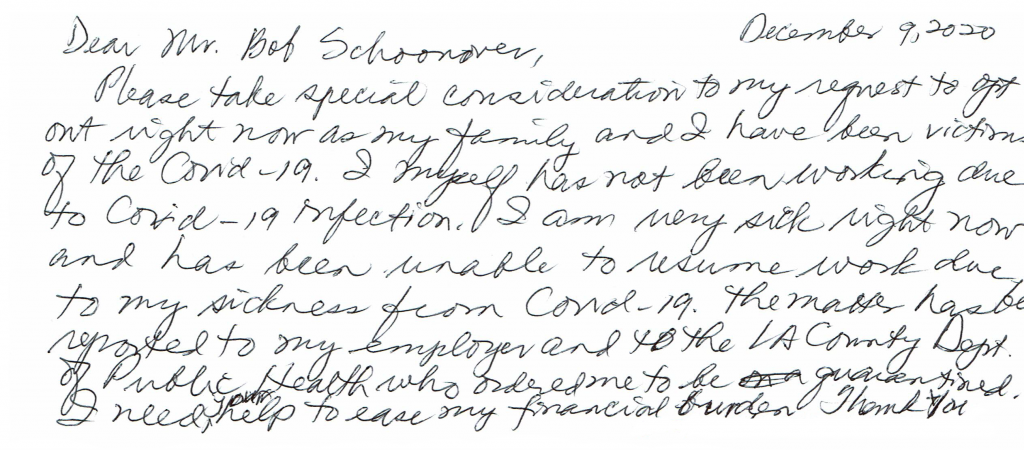 December 9, 2020
Dear Mr. Bob Schoonover,
Please take special consideration to my request to opt
out right now as my family and I have been victims
of the Covid-19. I myself has not been working due
to Covid-19 infection. I am very sick right now
and has been unable to resume work due
to my sickness from Covid-19. The matter has be
reported to my employer and to the LA County Dept.
of Public Health who ordered me to be quarantined.
I need your help to ease my financial burden Thank You